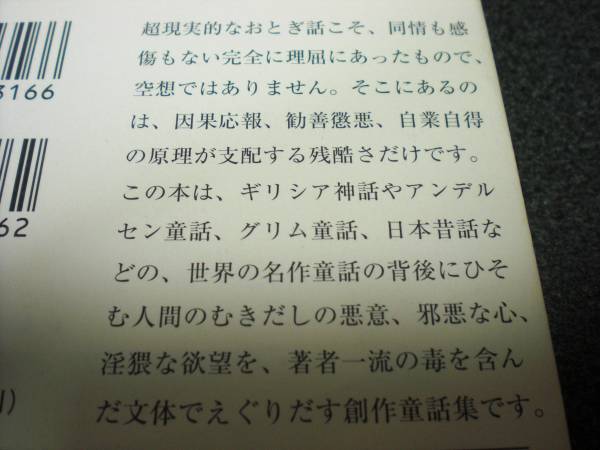 超現実的なおとぎ話こそ、同情も感
傷もない完全に理屈にあったもので、
空想ではありません。そこにあるの
は、因果応報、勧善懲悪、自業自得
の原理が支配する残酷さだけです。
この本は、ギリシア神話やアンデル
セン童話、グリム童話、日本昔話な
どの、世界の名作童話の背後にひそ
む人間のむきだしの悪意、邪悪な心、
淫猥な欲望を、著者一流の毒を含ん
だ文体でえぐりだす創作童話集です。
3166
62